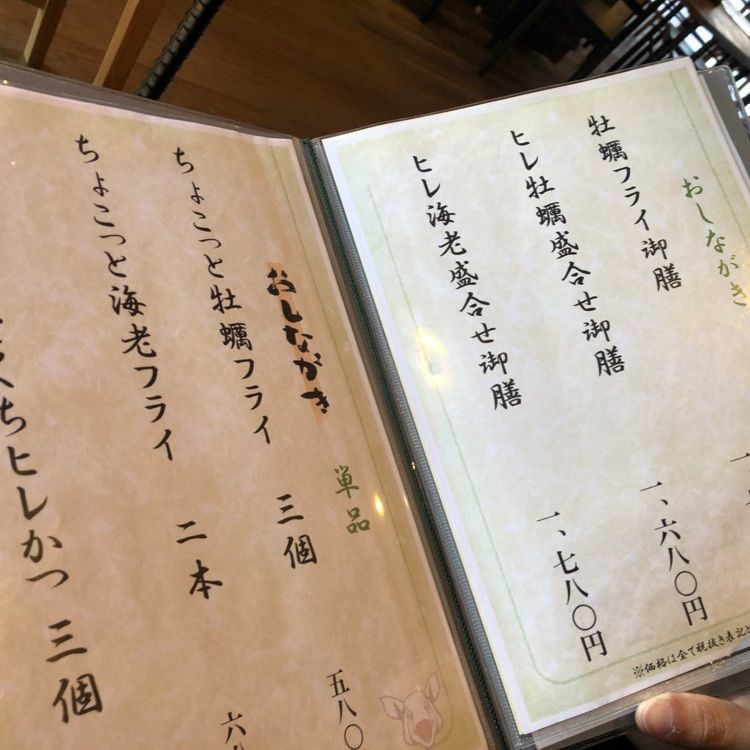 おしながき
牡蠣フライ御膳
ヒレ牡蠣盛合せ御膳 一、六八〇円
ヒレ海老盛合せ御膳 一、七八〇円
※価格は全て税抜き表記と
おしながき
単品
ちょこっと牡蠣フライ 三個 五八〇
ちょこっと海老フライ 二本 六八
くちヒレかつ 三個